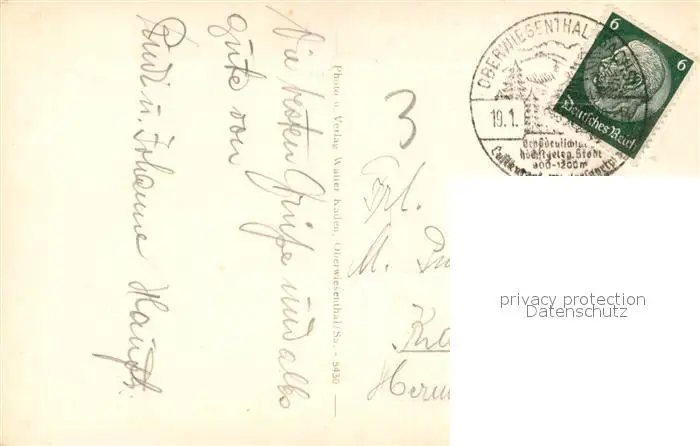 Die besten Grüße und alles
gute von
Rudi u. Johanne Haupt.
Photo u. Verlag Walter Kaden, Oberwiesenthal/Sa. - 5430
3
OBERWIESENTHAL
19.1.
Großdeutschl
höchstgeleg. Stadt
900-1200m
6
6
Deutsches Reich
Frl.
M.
privacy protection
Datenschutz